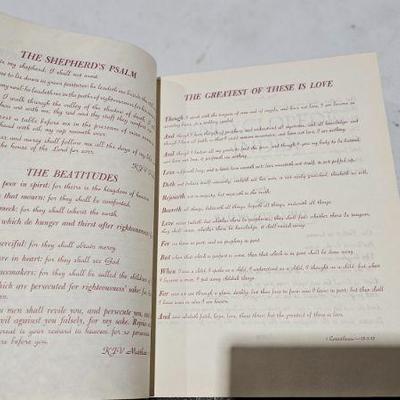 THE SHEPHERD'S PSALM
my shepherd; I shall not want
to lie down in green pastures: he leadeth me beside the
my soul: he leadeth me in the paths of righteousness for his
I walk through the valley of the shadow of
art with me; thy rod and thy staff they
a table before me in the presence of mine
head with oil; my cup runneth over
and mercy shall follow me all the days of my life
the house of the Lord for ever
KJV
THE BEATITUDES
poor in spirit: for theirs is the kingdom of
that mourn: for they shall be comforted.
meek: for they shall inherit the earth.
which do hunger and thirst after righteousness
merciful: for they shall obtain mercy.
pure in heart: for they shall see God.
peacemakers: for they shall be called the children of
which are persecuted for righteousness' sake: for
men shall revile you, and persecute you, and
evil against you falsely, for my sake. Rejoice
great is your reward in heaven: for so
before you.
KJV Matthew
THE GREATEST OF THESE IS LOVE
Though I speak with the tongues of men and of angels, and have not love, I am become as
sounding brass, or a tinkling cymbal.
And though I have the gift of prophecy, and understand all mysteries, and all knowledge; and
though I have all faith, so that I could remove mountains, and have not love, I am nothing.
And though I bestow all my goods to feed the poor, and though I give my body to be burned,
and have not love, it profiteth me nothing.
Love suffereth long, and is kind; love envieth not; love vaunteth not itself, is not puffed up,
Doth not behave itself unseemly, seeketh not her own, is not easily provoked, thinketh no
evil;
Rejoiceth not in iniquity, but rejoiceth in the truth;
Beareth all things, believeth all things, hopeth all things, endureth all things.
Love never faileth: but whether there be prophecies, they shall fail; whether there be tongues,
they shall cease; whether there be knowledge, it shall vanish away.
For we know in part, and we prophesy in part.
But when that which is perfect is come, then that which is in part shall be done away.
When I was a child, I spake as a child, I understood as a child, I thought as a child: but when
I became a man, I put away childish things.
For now we see through a glass, darkly; but then face to face: now I know in part; but then shall
I know even as also I am known.
And now abideth faith, hope, love, these three; but the greatest of these is love.
1 Corinthians